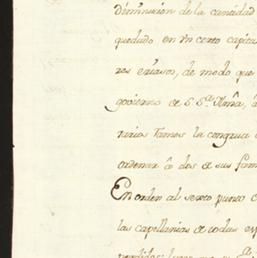 Diminucion de la cantidad
quedado en un corto capita
res escasos, de modo que
govierno de S. S.ª Ilma, à
varios Tamos la congrua
ordenar à dos de sus fam
En orden al sexto punto
las capellanias de todas esp